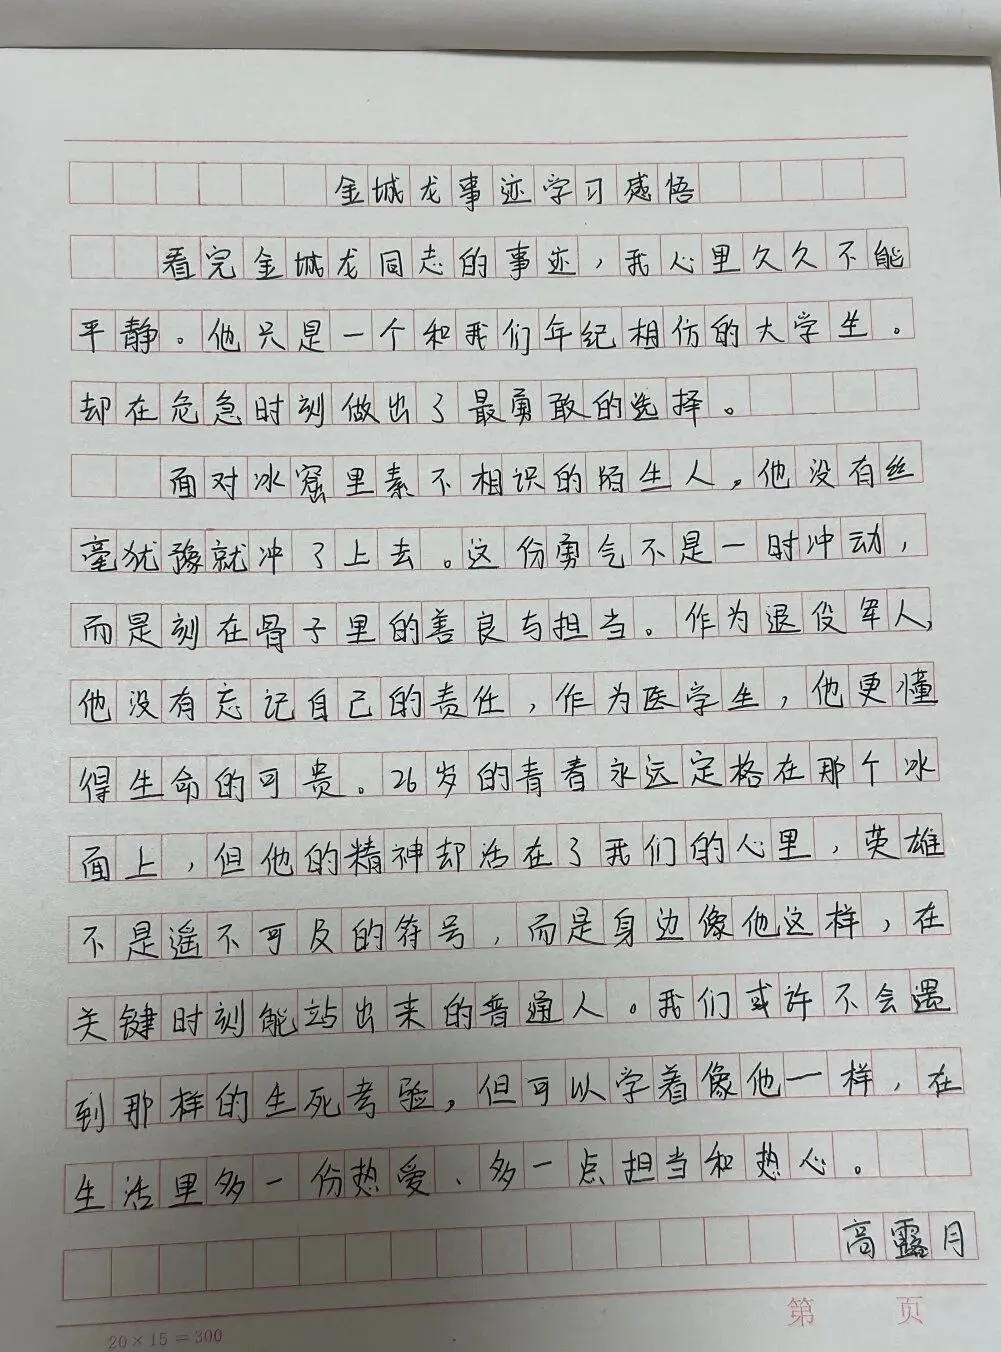 金城龙事迹学习感悟
看完金城龙同志的事迹，我心里久久不能
平静。他只是一个和我们年纪相仿的大学生。
却在危急时刻做出了最勇敢的选择。
面对冰窟里素不相识的陌生人，他没有丝
毫犹豫就冲了上去。这份勇气不是一时冲动，
而是刻在骨子里的善良与担当。作为退役军人，
他没有忘记自己的责任，作为医学生，他更懂
得生命的可贵。26岁的青春永远定格在那个冰
面上，但他的精神却活在了我们的心里，英雄
不是遥不可及的符号，而是身边像他这样，在
关键时刻能站出来的普通人。我们或许不会遇
到那样的生死考验，但可以学着像他一样，在
生活里多一份热爱、多一点担当和热心。
高露月
第 页
20×15=300